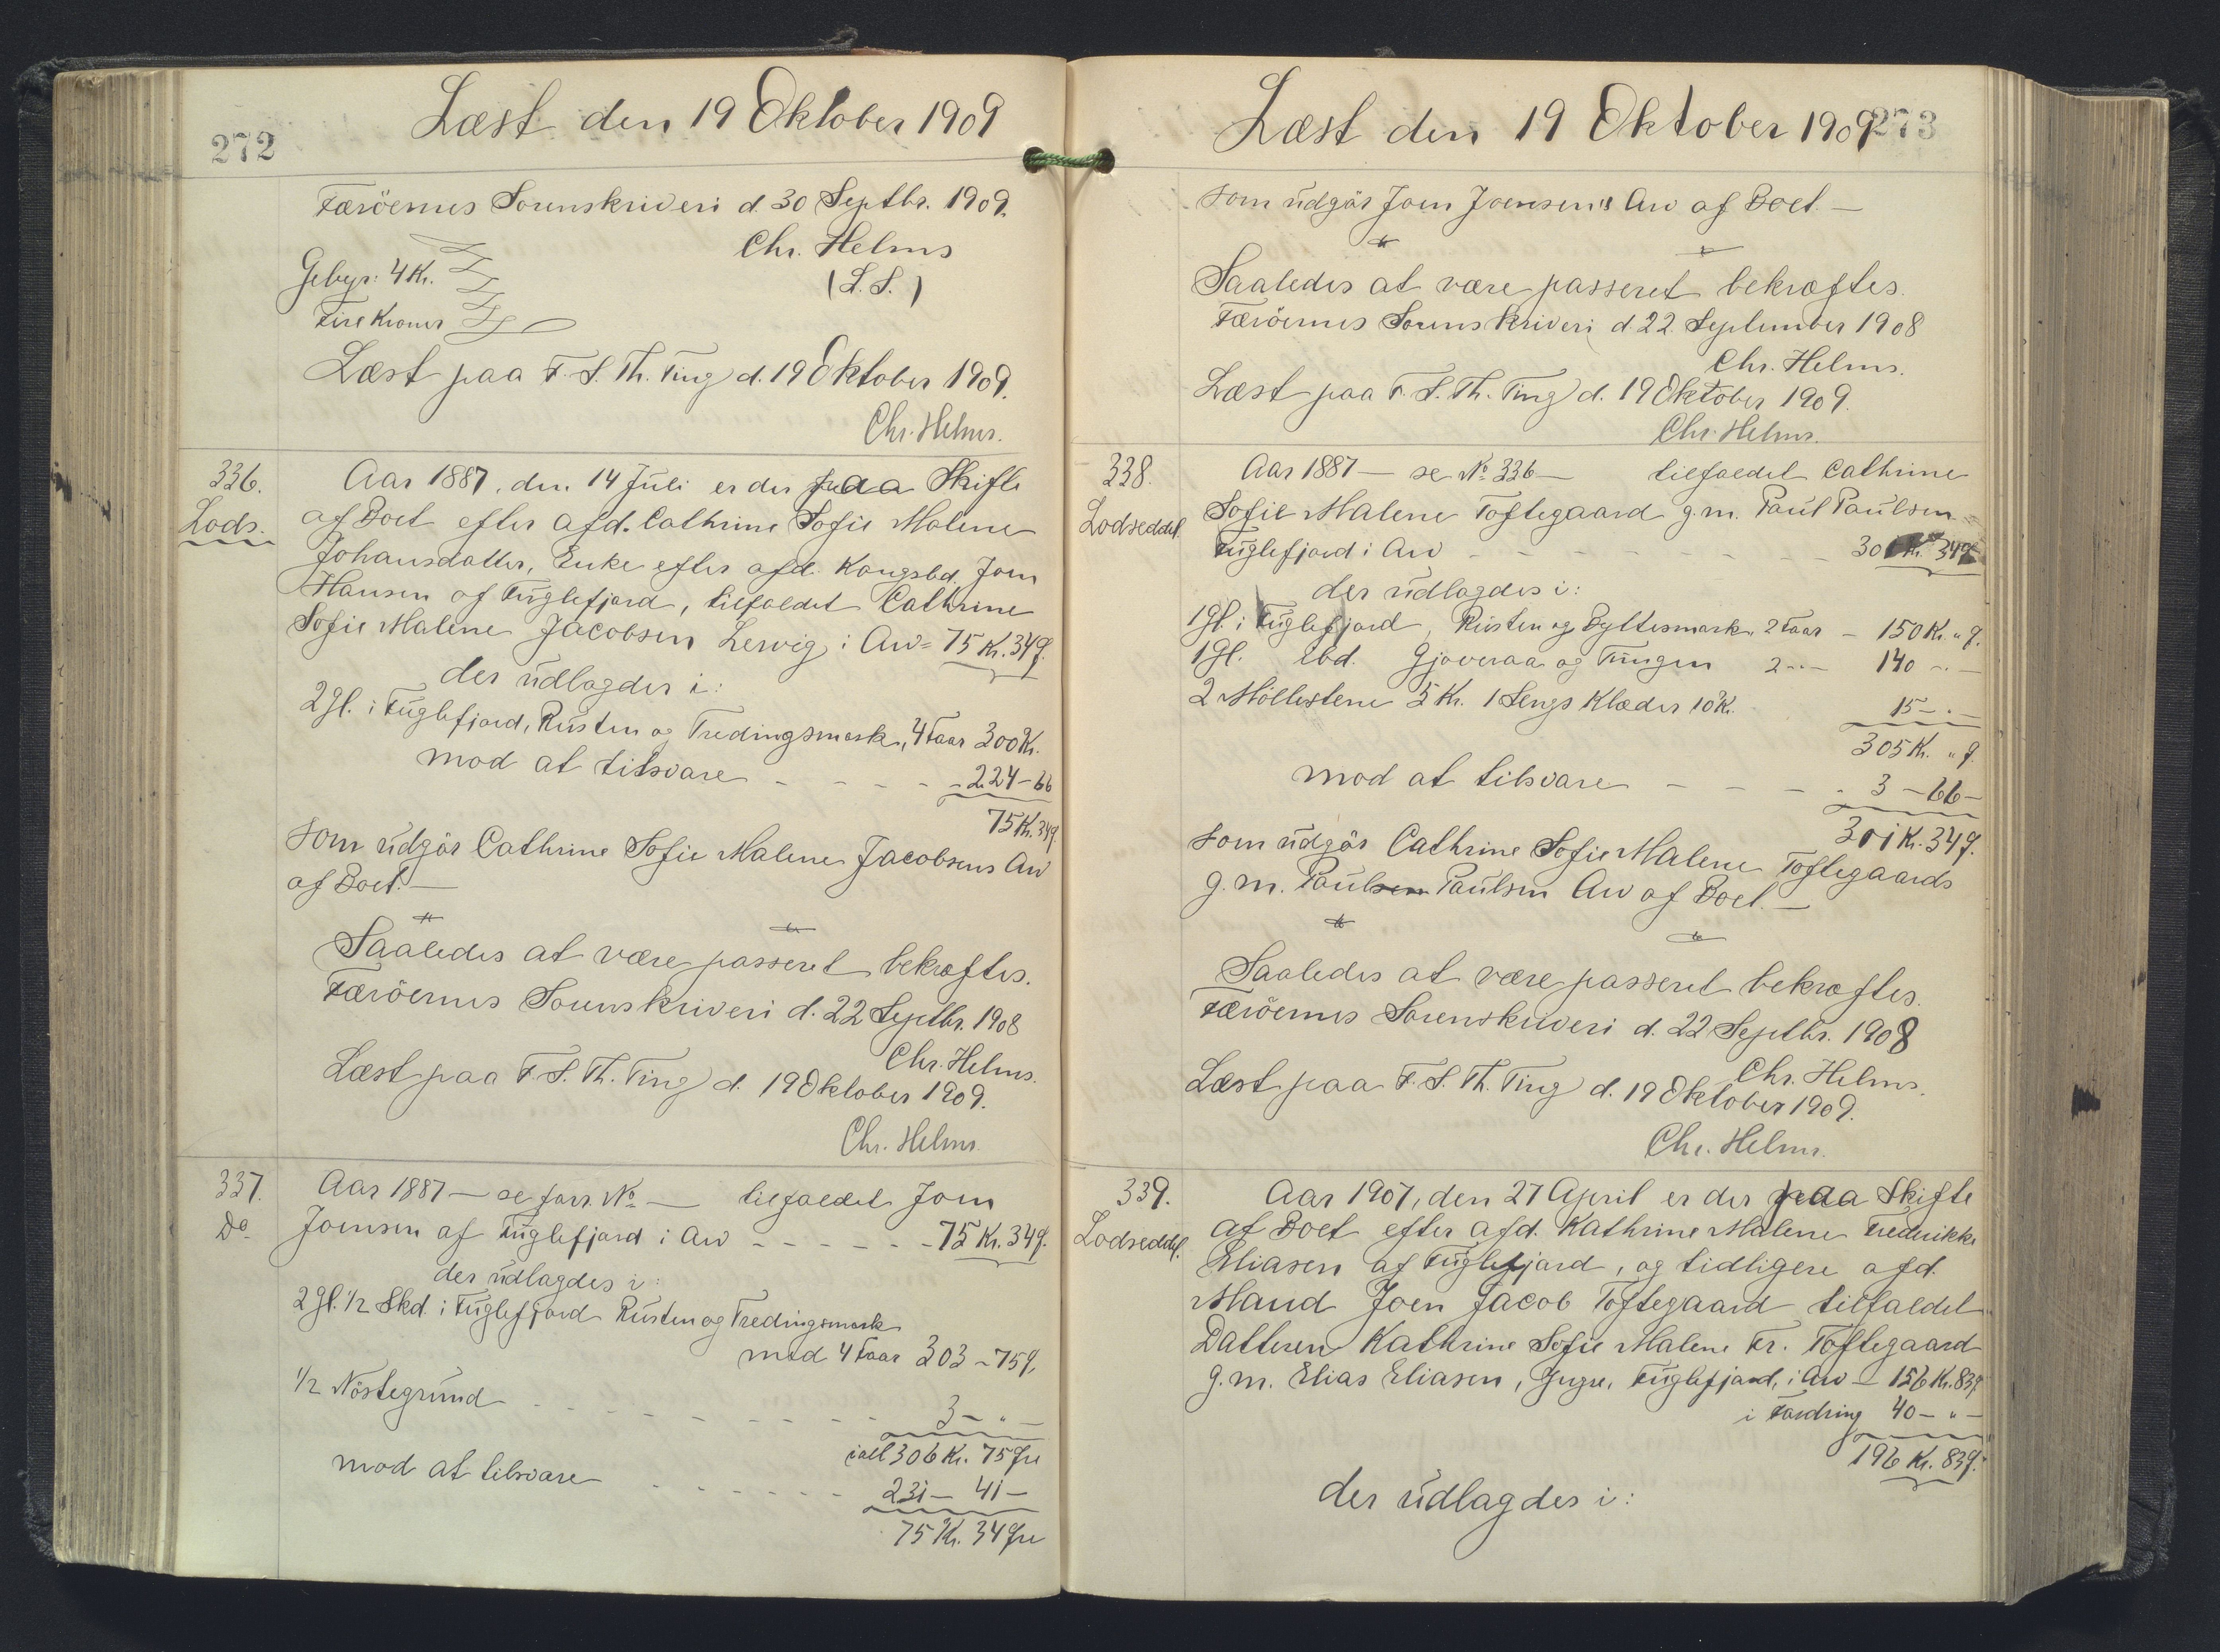 272
Læst den 19 Oktober 1909
Færöernes Sorenskriveri d. 30 Septbr. 1909.
Chr. Helms
Gebyr: 4 Kr.
(L.S.)
Fire Kroner
Læst paa F. S. Th. Ting d. 19 Oktober 1909.
Chr. Helms.
336.
Lods.
Aar 1887, den 14 Juli er der paa Skifte
af Boet efter afd. Cathrine Sofie Malene
Johansdatter, Enke efter afd. Kongsbd. Joen
Hansen af Fuglefjord, tilfaldet Cathrine
Sofie Malene Jacobsen Lervig i Arv = 75 Kr. 34 Ø.
der udlagdes i:
2 Gl. i Fuglefjord, Rusten og Tredingsmark, 4 Faar 300 Kr.
mod at tilsvare - - - - - 224 - 66
75 Kr. 34 Ø
som udgör Cathrine Sofie Malene Jacobsens Arv
af Boet. —
Saaledes at være passeret bekræftes.
Færöernes Sorenskriveri d. 22 Septbr. 1908
Chr. Helms.
Læst paa F. S. Th. Ting d. 19 Oktober 1909.
Chr. Helms.
337.
Do
Aar 1887 — se forr. No — tilfaldet Joen
Joensen af Fuglefjord i Arv - - - - - - 75 Kr. 34 Ø.
der udlagdes i:
2 Gl. 1/2 Skd. i Fuglefjord Rusten og Tredingsmark
med 4 Faar 303 - 75 Ø.
1/2 Nöstegrund - - - - - - - - 3 - " -
ialt 306 Kr. 75 Øre
mod at tilsvare - - - - - - - 231 - 41 -
75 Kr. 34 Øre
273
Læst den 19 Oktober 1909
som udgör Joen Joensens Arv af Boet. —
Saaledes at være passeret bekræftes.
Færöernes Sorenskriveri d. 22 September 1908
Chr. Helms.
Læst paa F. S. Th. Ting d. 19 Oktober 1909.
Chr. Helms.
338.
Lodseddel.
Aar 1887 — se No 336 — tilfaldet Cathrine
Sofie Malene Toftegaard g.m. Paul Paulsen
Fuglefjord i Arv - - - - - - - 301 Kr. 34 Ø
der udlagdes i:
1 Gl. i Fuglefjord, Rusten og Byltesmark, 2 Faar - 150 Kr. " Ø.
1 Gl. Ibd. Gjoveraa og Tungen 2 - " - 140 - " -
2 Möllestene 5 Kr. 1 Sengs Klæder 10 Kr. 15 - " -
305 Kr. " Ø
mod at tilsvare - - - - - 3 - 66 -
301 Kr. 34 Ø.
som udgör Cathrine Sofie Malene Toftegaards
g.m. Paulsen Paulsen Arv af Boet. —
Saaledes at være passeret bekræftes.
Færöernes Sorenskriveri d. 22 Septbr. 1908
Chr. Helms.
Læst paa F. S. Th. Ting d. 19 Oktober 1909.
Chr. Helms.
339.
Lodseddel.
Aar 1907, den 27 April er der paa Skifte
af Boet efter afd. Kathrine Malene Frederikke
Eliasen af Fuglefjord, og tidligere afd.
Mand Joen Jacob Toftegaard tilfaldet
Datteren Kathrine Sofie Malene Fr. Toftegaard
g.m. Elias Eliasen, Fuglefjord, i Arv - 156 Kr. 83 Ø.
i Fordring 40 - " -
196 Kr. 83 Ø.
der udlagdes i: